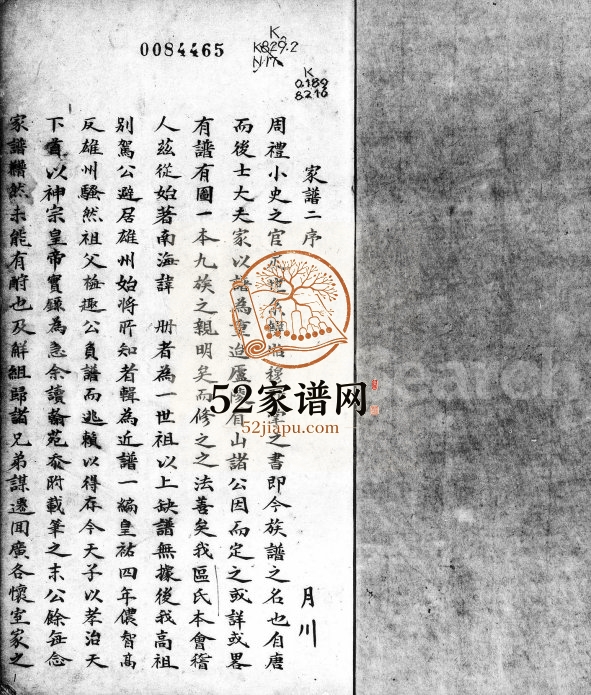 0084465
K
K829.2
K
0189
8216
家譜二序
月川
周禮小史之官 之書即今族譜之名也自唐
而後士大夫家以譜為重迨廬陵眉山諸公因而定之或詳或畧
有譜有圖一本九族之親明矣而修之之法善矣我區氏本會稽
人茲從始著南海諱 冊者為一世祖以上缺譜無據後我高祖
別駕公避居雄州始將所知者輯為近譜一編皇祐四年儂智高
反雄州騷然祖父梅趣公負譜而逃賴以得存今天子以孝治天
下 以神宗皇帝實錄為急余讀翰苑忝附載筆之末公餘每念
家譜 然未能有所也及解組歸諸兄弟謀遷閩廣各懷室家之
52家谱网
52jiapu.com